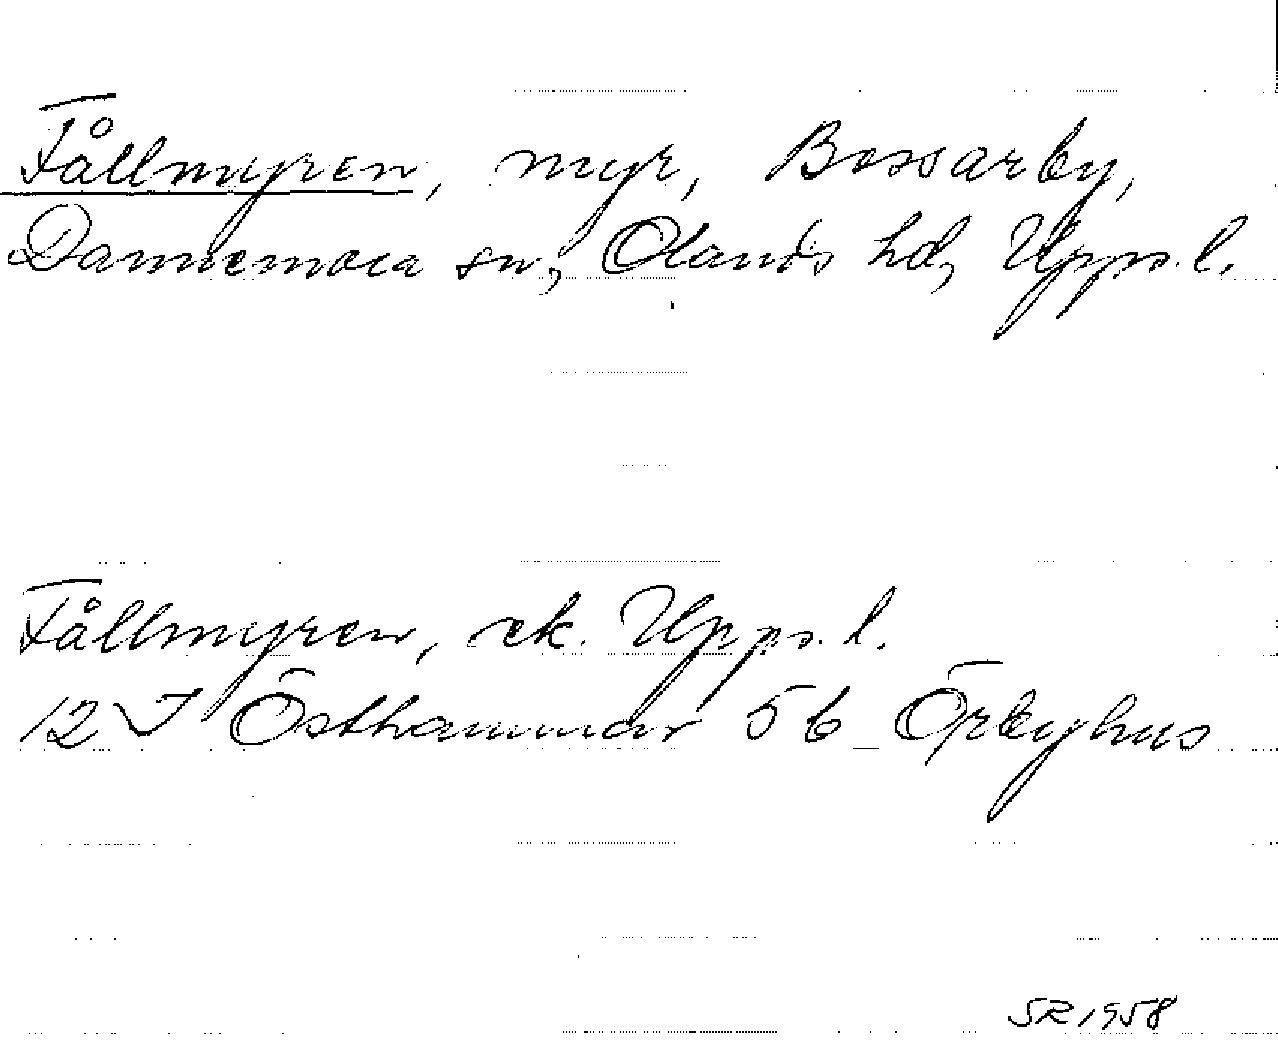 Fållmyren, myr, Bossarby,
Dannemora sn, Olands hd, Upps. l.
Fållmyren, ek. Upps. l.
12 I Östhammar 5b Örbyhus
SR 1958